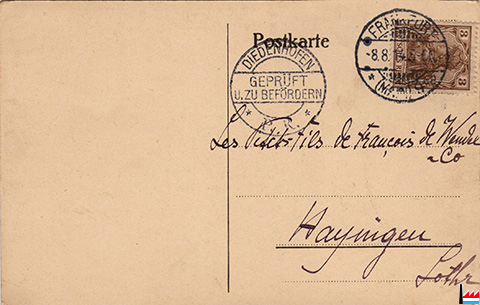 Postkarte
DIEDENHOFEN
GEPRÜFT
U. ZU BEFÖRDERN
P.K.
FRANKFURT
8.8.14.
(MAIN)
3 3
Les Petits fils de François de Wendel
& Co
Hayingen
Lothr